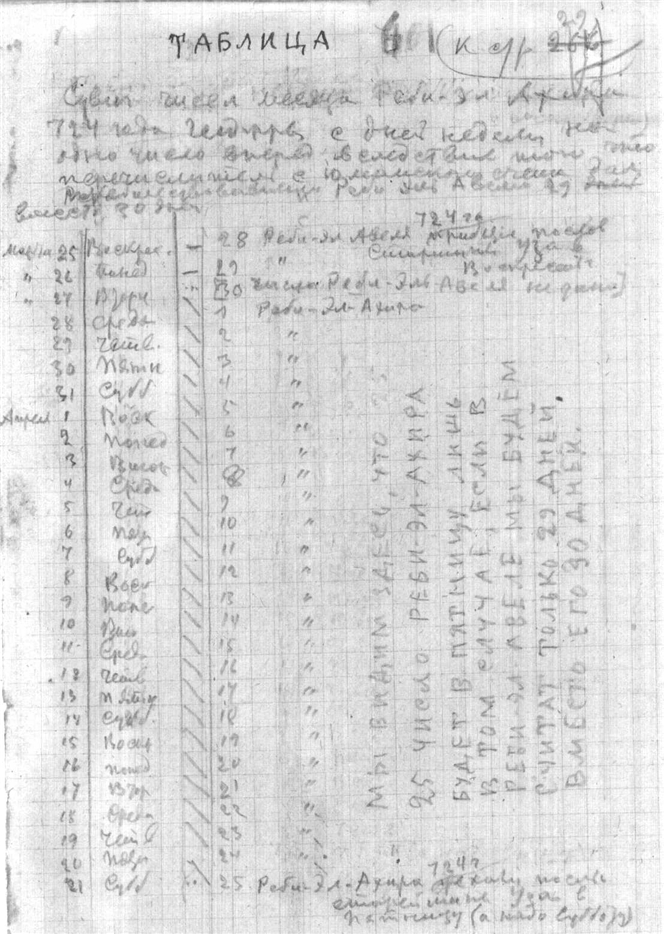 ТАБЛИЦА 6 (к стр 22)
чисел месяца Реби-эл Ахира
724 года с дней недели, на
одно число вперед вследствие того что
перечислители с Юлианского счета дали
Реби эль Авелю 29 дней
вместо 30 дней
Марта 25 Воскрес. — 28 Реби-эл Авеля 724 г. послов
" 26 Понед — 29 " Воскресенье
" 27 Вторн [30 числа Реби-Эль Авеля не дано]
28 Среда 1 Реби-Эл-Ахира
29 Четв. 2 "
30 Пятн 3 "
31 Субб 4 "
Апрел 1 Воск 5 "
2 Понед 6 "
3 Втор 7 "
4 Сред 8 "
5 Чет 9 "
6 Пят 10 "
7 Субб 11 "
8 Воск 12 "
9 Поне 13 "
10 Вто 14 "
11 Среда 15 "
12 Четв 16 "
13 Пятн 17 "
14 Субб. 18 "
15 Воск 19 "
16 Понед 20 "
17 Втор 21 "
18 Среда 22 "
19 Четв 23 "
20 Пятн 24 "
21 Субб 25 Реби-Эл-Ахира 724 г. послы
в
пятницу (а надо субботу)
МЫ ВИДИМ ЗДЕСЬ, ЧТО
25 ЧИСЛО РЕБИ-ЭЛ-АХИРА
БУДЕТ В ПЯТНИЦУ ЛИШЬ
В ТОМ СЛУЧАЕ, ЕСЛИ В
РЕБИ ЭЛ АВЕЛЕ МЫ БУДЕМ
СЧИТАТ ТОЛЬКО 29 ДНЕЙ
ВМЕСТО ЕГО 30 ДНЕЙ.